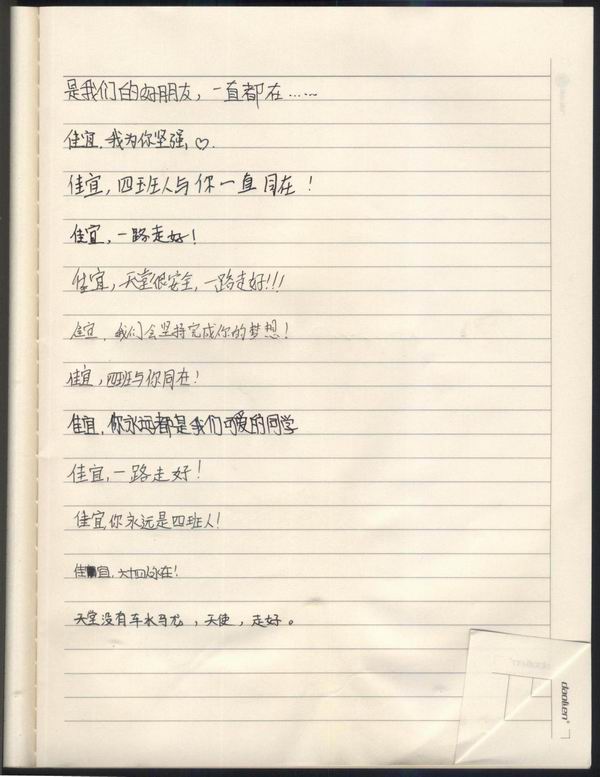 是我们的好朋友，一直都在……
佳宜，我为你坚强，♡.
佳宜，四班人与你一直同在！
佳宜，一路走好！
佳宜，天堂很安全，一路走好!!!
佳宜，我们会坚持完成你的梦想！
佳宜，四班与你同在！
佳宜，你永远都是我们可爱的同学
佳宜，一路走好！
佳宜，你永远是四班人！
佳宜，永在！
天堂没有车水马龙，天使，走好。
daolien